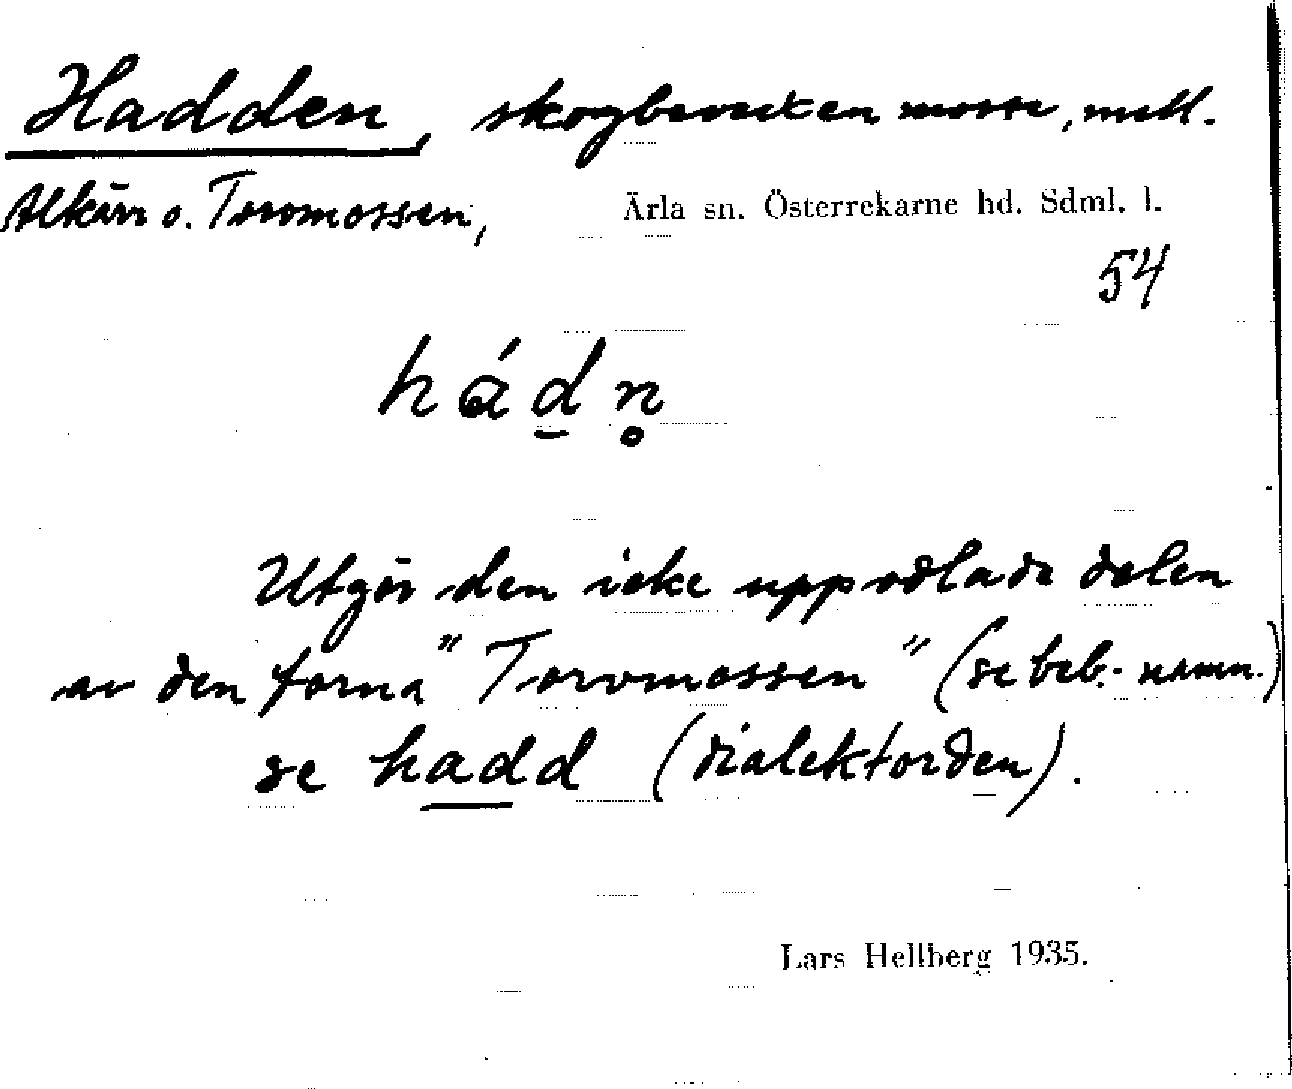 Hadden, skogbevuxen mosse, mell.
Alkärr o. Torvmossen,
Ärla sn. Österrekarne hd. Sdml. l.
54
hádn̥
Utgör den icke uppodlade delen
av den forna "Torvmossen" (se beb.-namn.)
se hadd (dialektorden).
Lars Hellberg 1935.